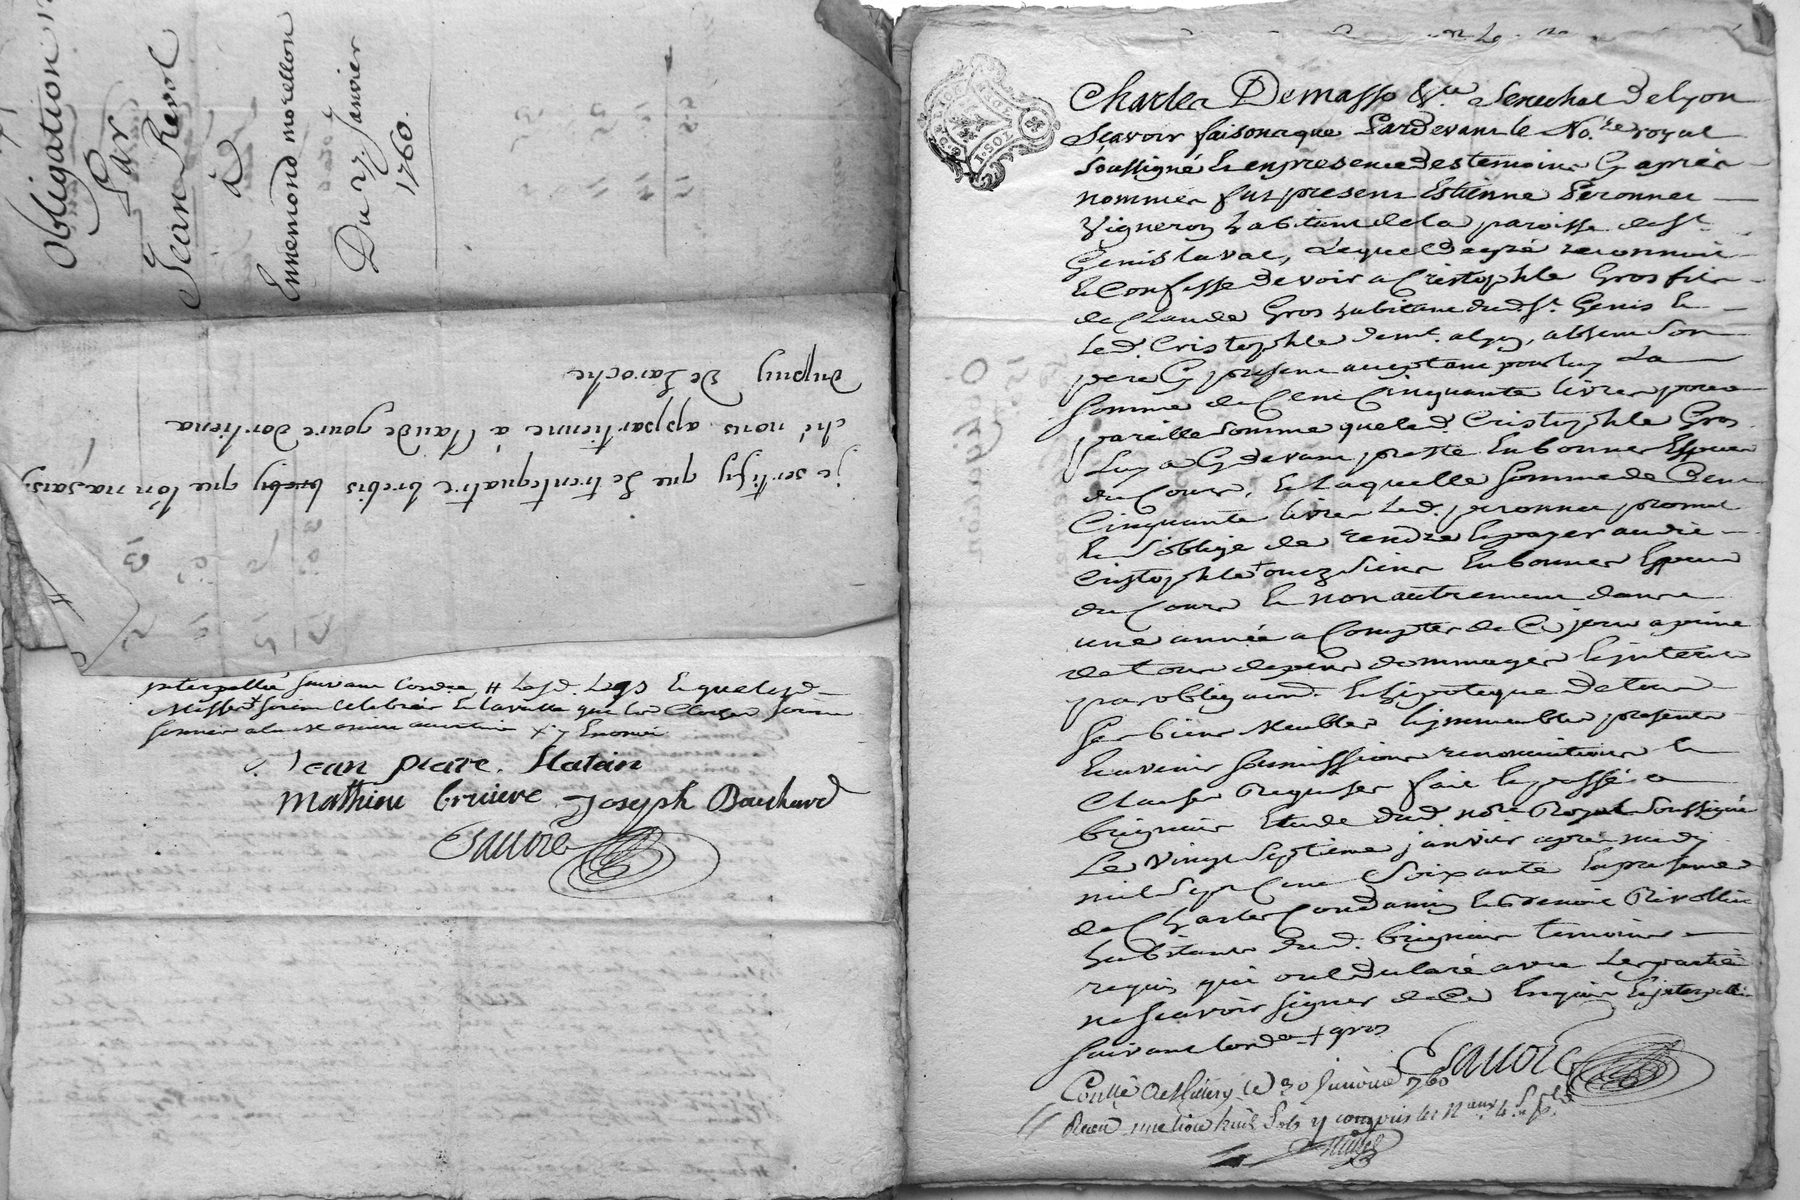 Obligation
Par
Jean Revol
à
Ennemond morellon
Du 27 Janvier
1760.
je sertifiy que de trentequatre brebis que lon na saisy
ché nous appartienne à Claude goure dortiena
dupuy De Laroche
interpellés suivant lordre # Led. Legs
Messes seront celebrées
Jean piare. Flatain
Mathieu bruiere Joseph Bouchard
Sauvoie
Charles Demasso &.ca Senechal de Lyon
Scavoir faisons que Pardevant le No.re royal
Soussigné & en presence des temoins Cy après
nommés fut present Estienne Peronnet
Vigneron habitant de la paroisse de St.
Genis laval, Lequel de gré reconnoit
& Confesse devoir a Cristophle Gros fils
de Claude Gros habitant dud. St. Genis &
Led. Cristophle demt. a Lyon, absent Son
pere Cy present acceptant pour luy La
Somme de Cent Cinquante livres pour
pareille Somme que led. Cristophle Gros
Luy a Cy devant presté En bonnes Espèces
du Cours, & laquelle Somme de Cent
Cinquante livres Led. peronnet promet
& S'oblige de rendre & payer audit
Cristophle + ou ez Siens En bonnes Espèces
du Cours & non autrement dans
une année a Compter de Ce jour a peine
de tous depens dommages & interets
par obligaon. & hipoteque de tous
Ses biens Meubles & immeubles presents
& avenir Soumissions renonciations &
Clauses Requises fait & passé a
brignais Etude dud. no.re Royal Soussigné
Le Vingt Septieme janvier après midy
mil Sept Cent Soixante En presence
de Charles Condamin & Benoit Rivollier
habitants dud. brignais temoins
requis qui ont declaré avec Les parties
ne Scavoir Signer de Ce Enquis & interpellés
Suivant lordre + gros
Sauvoie
Conllé a le 30 Janvier 1760
Receu une livre huit Sols y compris les n.aux 4 S. p. l.